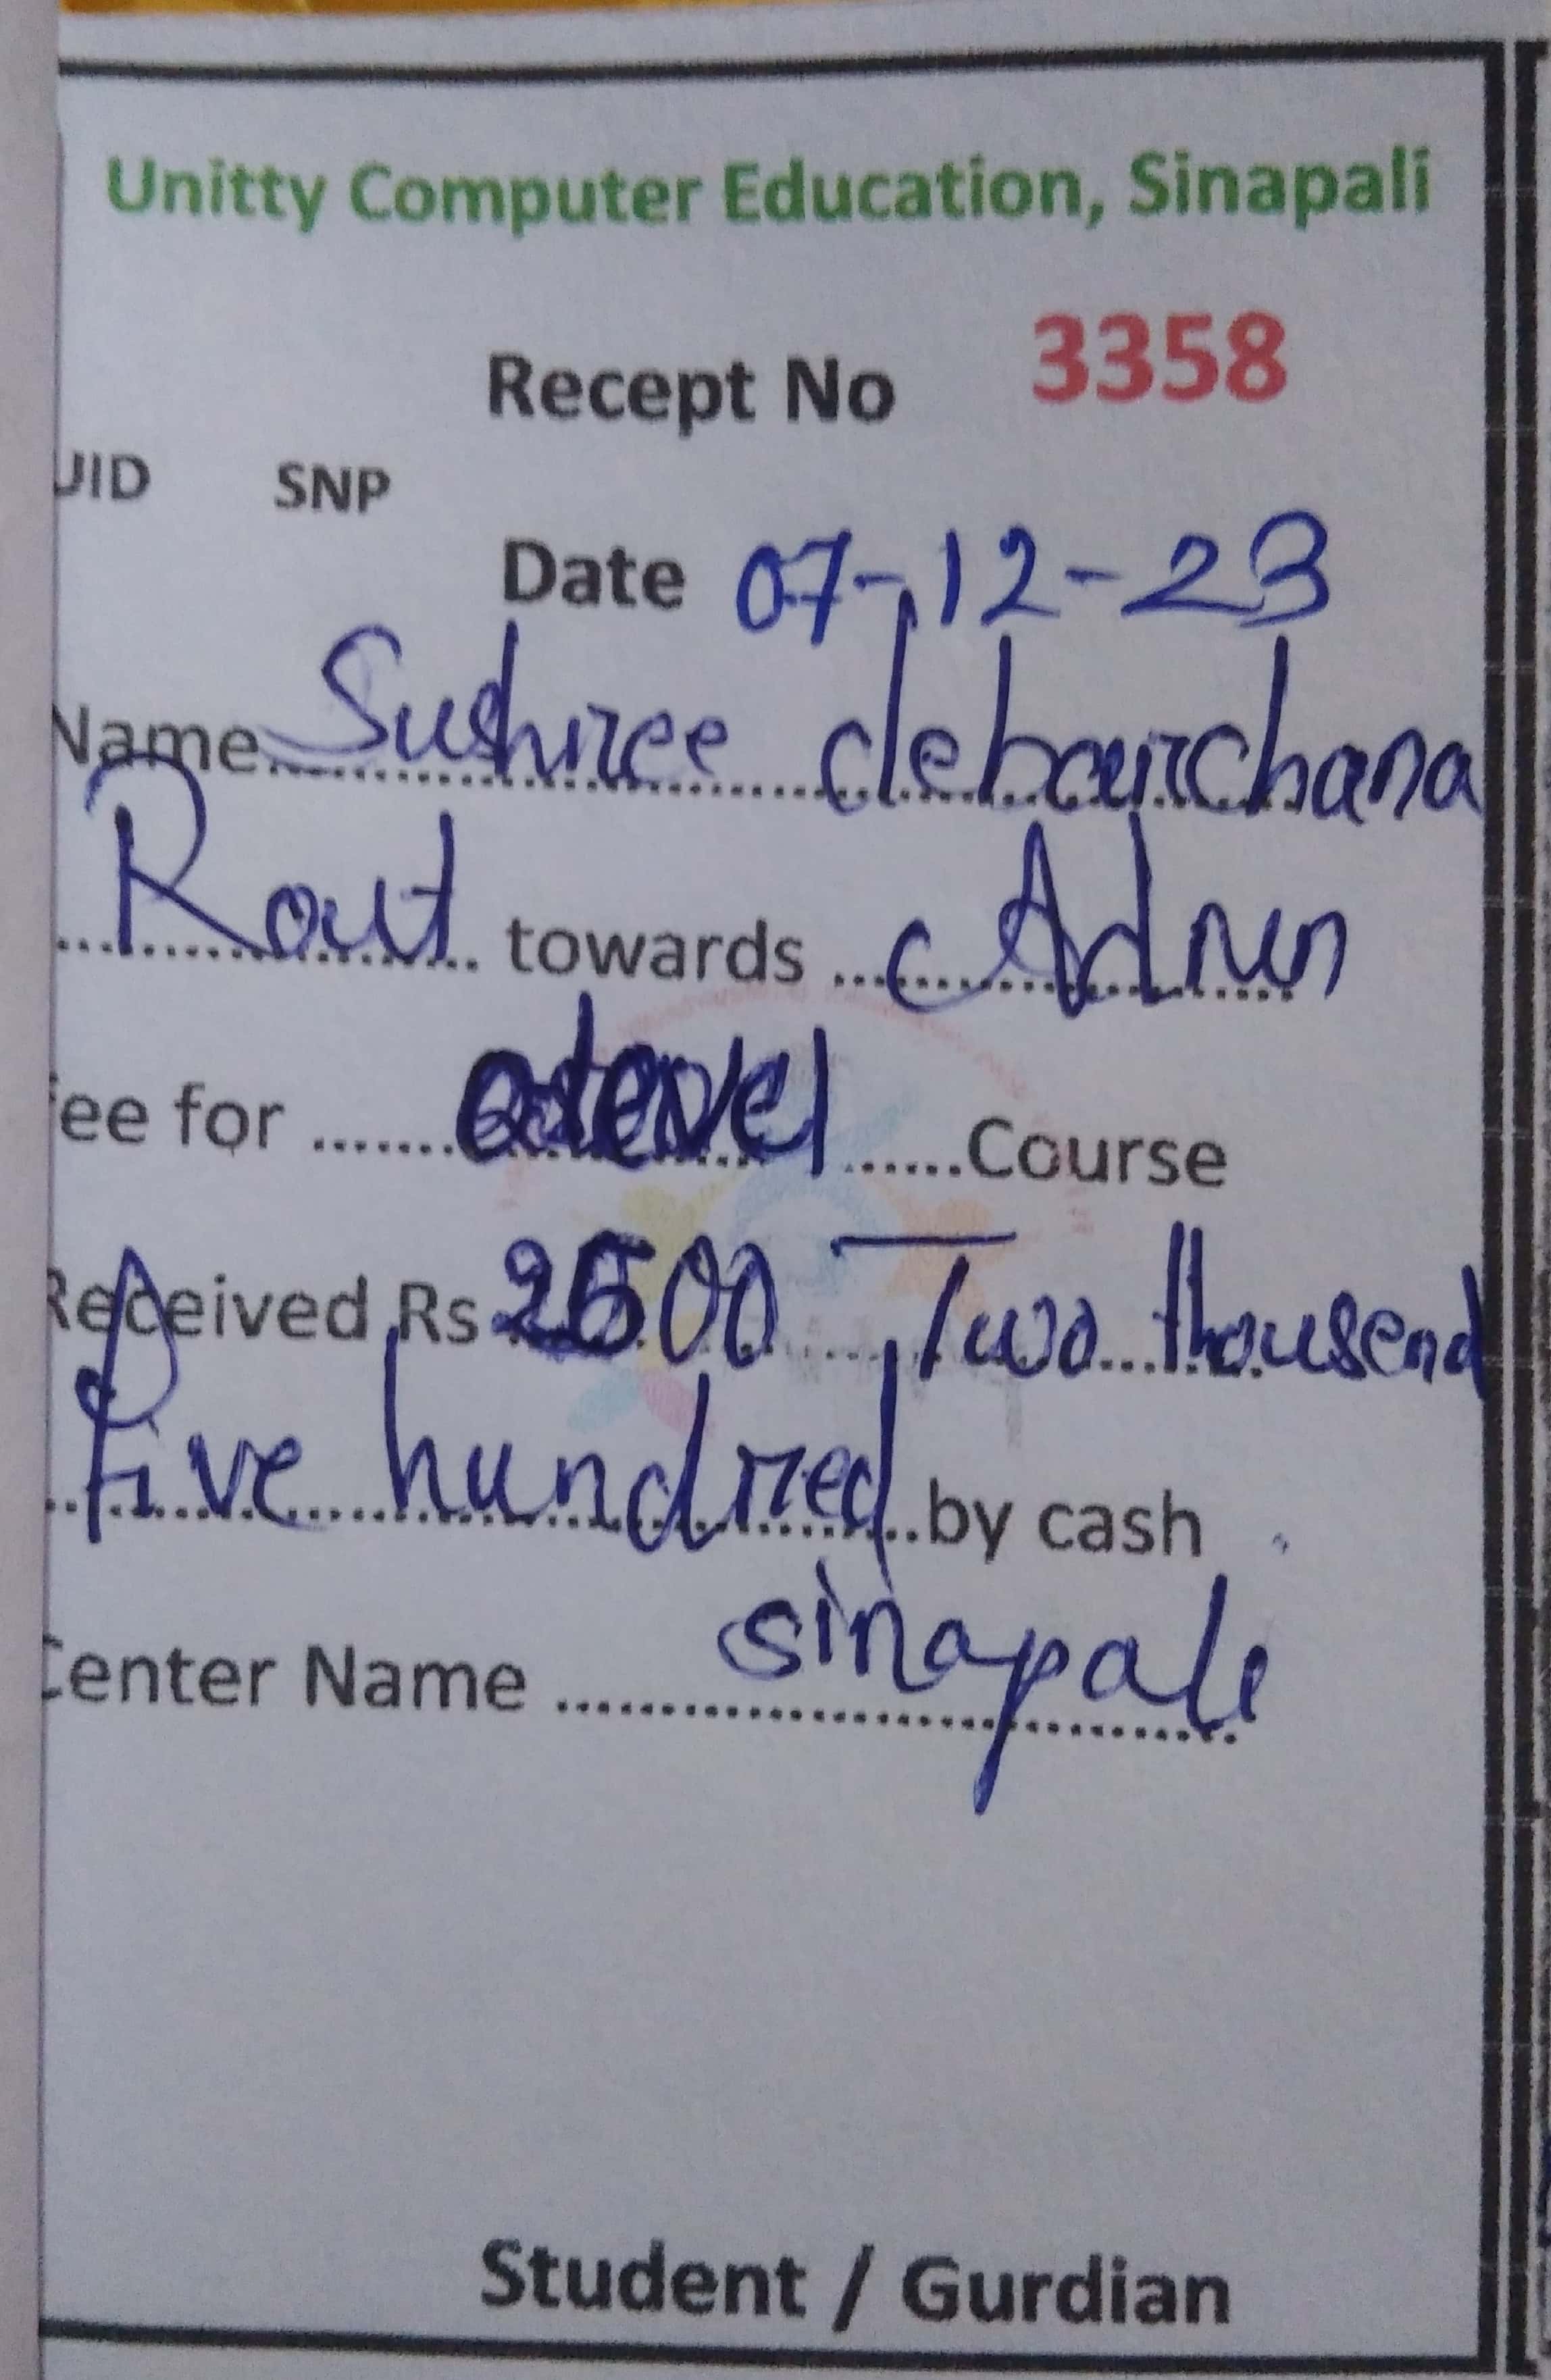 Unitty Computer Education, Sinapali
Recept No 3358
UID SNP
Date 07-12-23
Name Sushree debarchana
Rout towards Admn
Fee for olevel Course
Received Rs 2500 Two thousend
Five hundred by cash
Center Name sinapali
Student / Gurdian